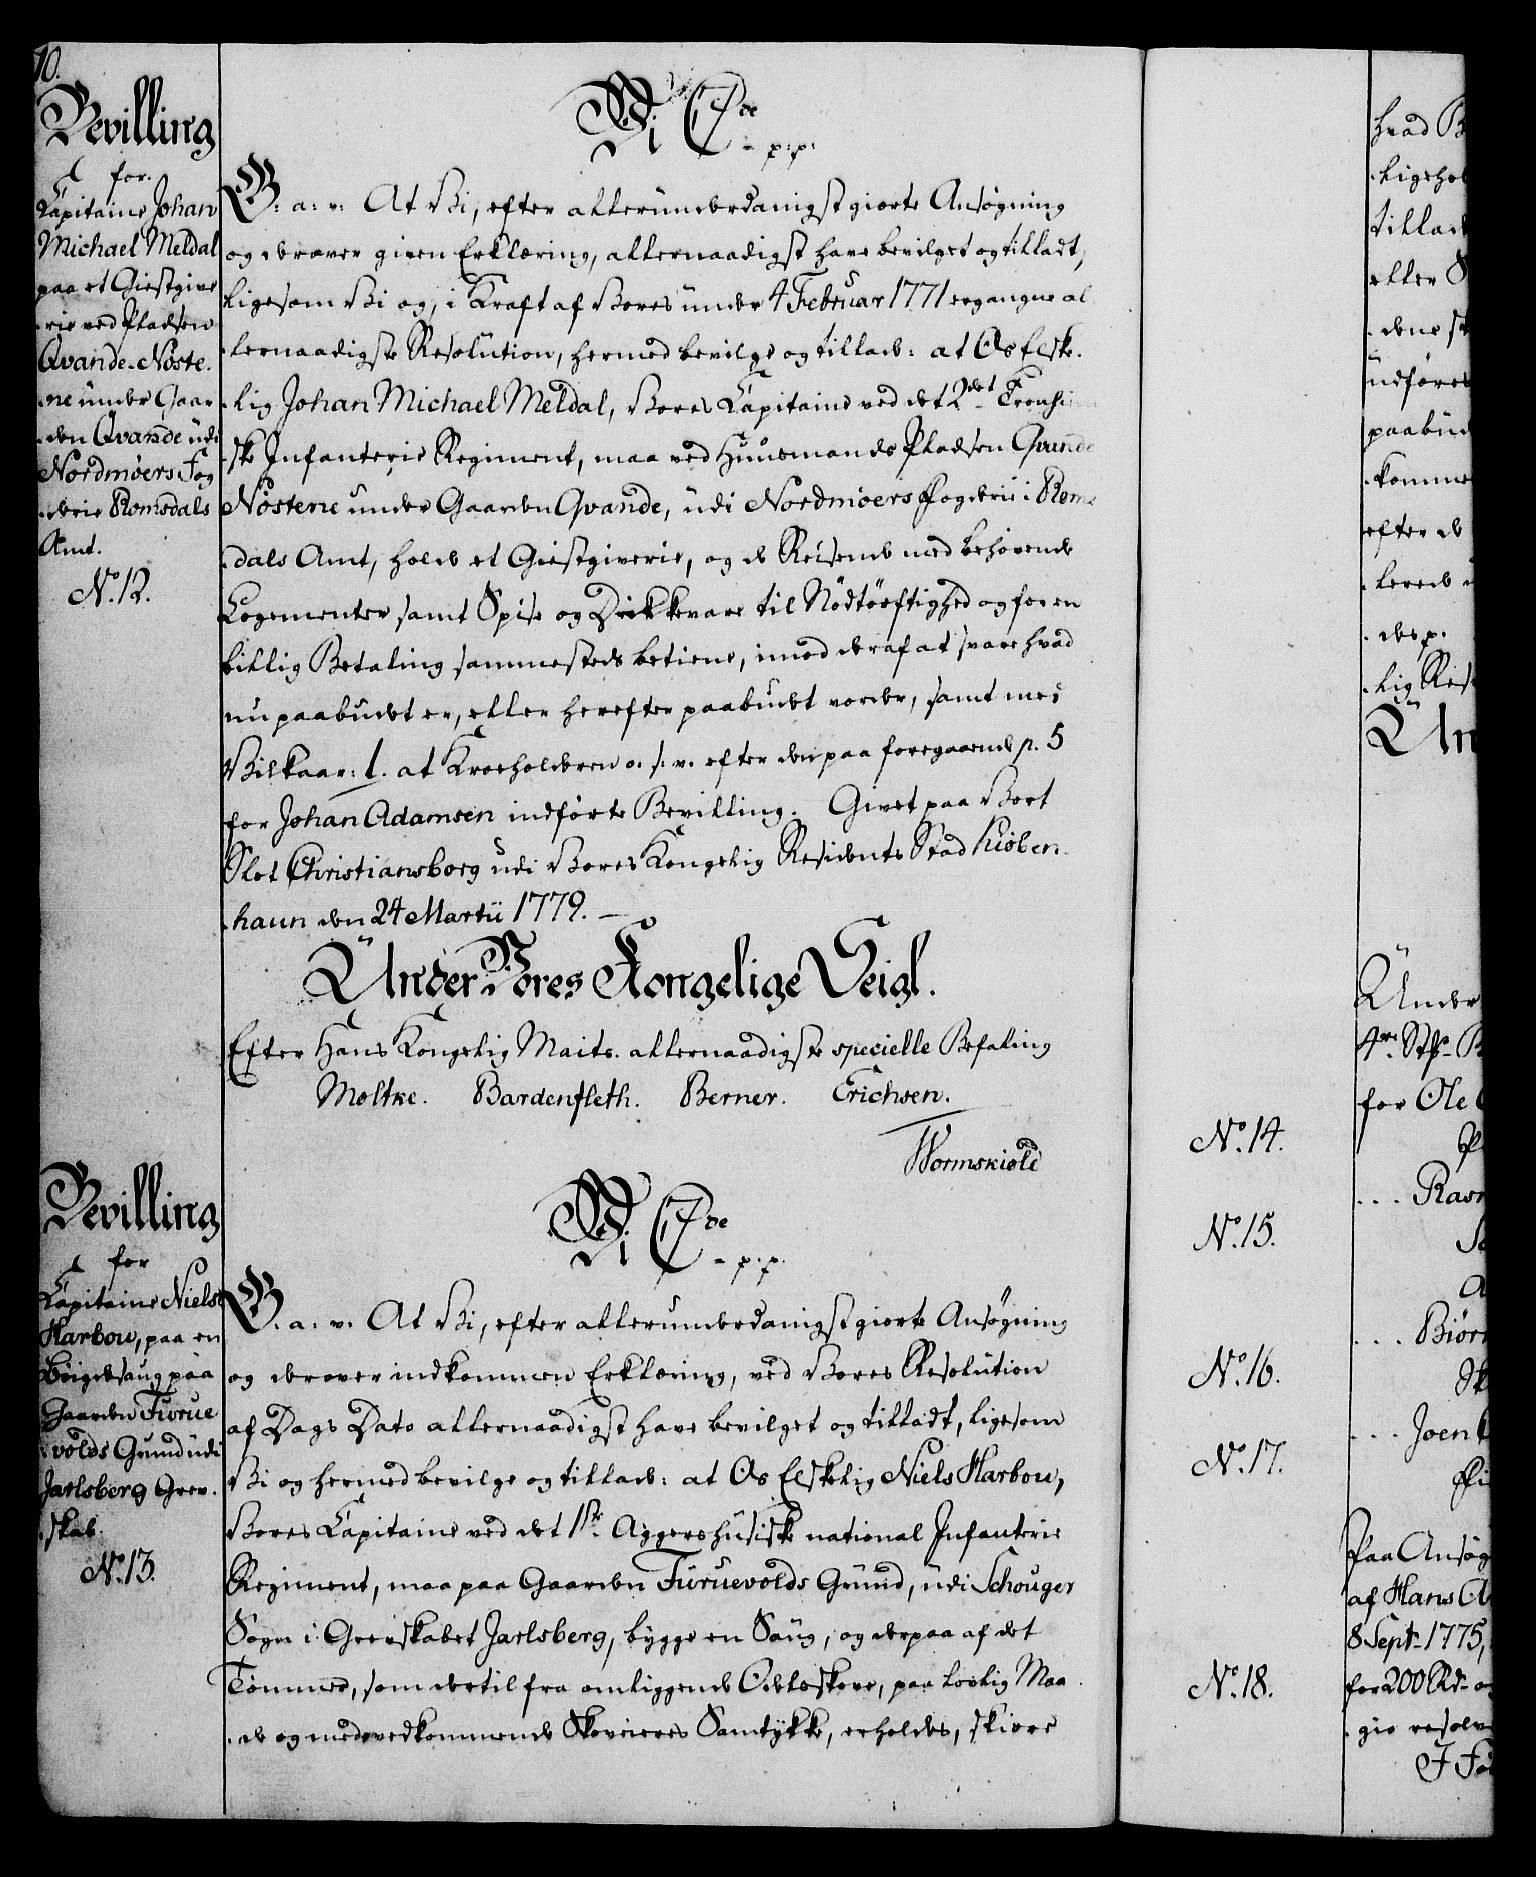 10.
Bevilling
for
Capitaine Johan
Michael Meldal
paa et Giestgive
rie ved Pladsen
Qvande-Nöste.
.ne under Gaar
.den Qvande udi
Nordmöers Fog
.derie Romsdals
Amt.
No. 12.
Vi C 7de
- p:p:
G. a: v: At Vi, efter allerunderdanigst giorte Ansøgning
og derover given Erklæring, allernaadigst have bevilget og tilladt,
ligesom Vi og, i Kraft af Vores under 4 Februar 1771 ergangne al
.lernaadigste Resolution, hermed bevilge og tillade: at Os Elske.
.lig Johan Michael Meldal, Vores Capitaine ved det 2det Tronhiem
.ske Infanterie Regiment, maa ved Huusmands Pladsen Qvande
Nöstene under Gaarden Qvande, udi Nordmöers Fogderie i Roms
.dals Amt, holde et Giestgiverie, og de Reisende med behövende
Logementer samt Spise og Drikkevare til Nödtörftighed og for en
billig Betaling sammesteds betiene, imod deraf at svare hvad
nu paabudet er, eller herefter paabudet vorder, samt mod
Vilkaar: 1. at Kroeholderen o. s. v. efter den paa foregaaende p. 5
for Johan Adamsen indførte Bevilling. Givet paa Vort
Slot Christiansborg udi Vores Kongelig Residents Stad Kiöben
.haun den 24 Martii 1779. —
Under Vores Kongelige Seigl.
Efter Hans Kongelig Maits. allernaadigste specielle Befaling
Moltke. Bardenfleth. Berner. Erichsen.
Wormskiold
Bevilling
for
Capitaine Niels
Harbou, paa en
Böigdesaug paa
Gaarden Furue
.volds Grund udi
Jarlsberg Grev.
.skab.
No. 13.
Vi C 7de
- p.p.
G. a. v. At Vi, efter allerunderdanigst giorte Ansøgning
og derover indkommen Erklæring, ved Vores Resolution
af Dags Dato allernaadigst have bevilget og tilladt, ligesom
Vi og hermed bevilge og tillade: at Os Elskelig Niels Harbou,
Vores Capitaine ved det 1ste Aggershusiske national Infanterie
Regiment, maa paa Gaarden Furuevolds Grund, udi Schouger
Sogn i Grevskabet Jarlsberg, bygge en Saug, og derpaa af det
Tömmer, som dertil fra omliggende Odelsskove, paa lovlig Maa
.de og med vedkommende Skoveieres Samtykke, erholdes, skiære
No. 14.
No. 15.
No. 16.
No. 17.
No. 18.
hvad B
.ligehol
tillad
eller S
.dene s
udföres
paabud
.komme
efter d
.lerede
.des p.
.lig Res
Un
Under
4re Stk. B
for Ole
P
... Rasm
S
A
... Biör
Sk
... Joen
Fi
Paa Ansög
af Hans A
8 Sept. 1775,
for 200 Rd. o
.gie resolv
I Fø